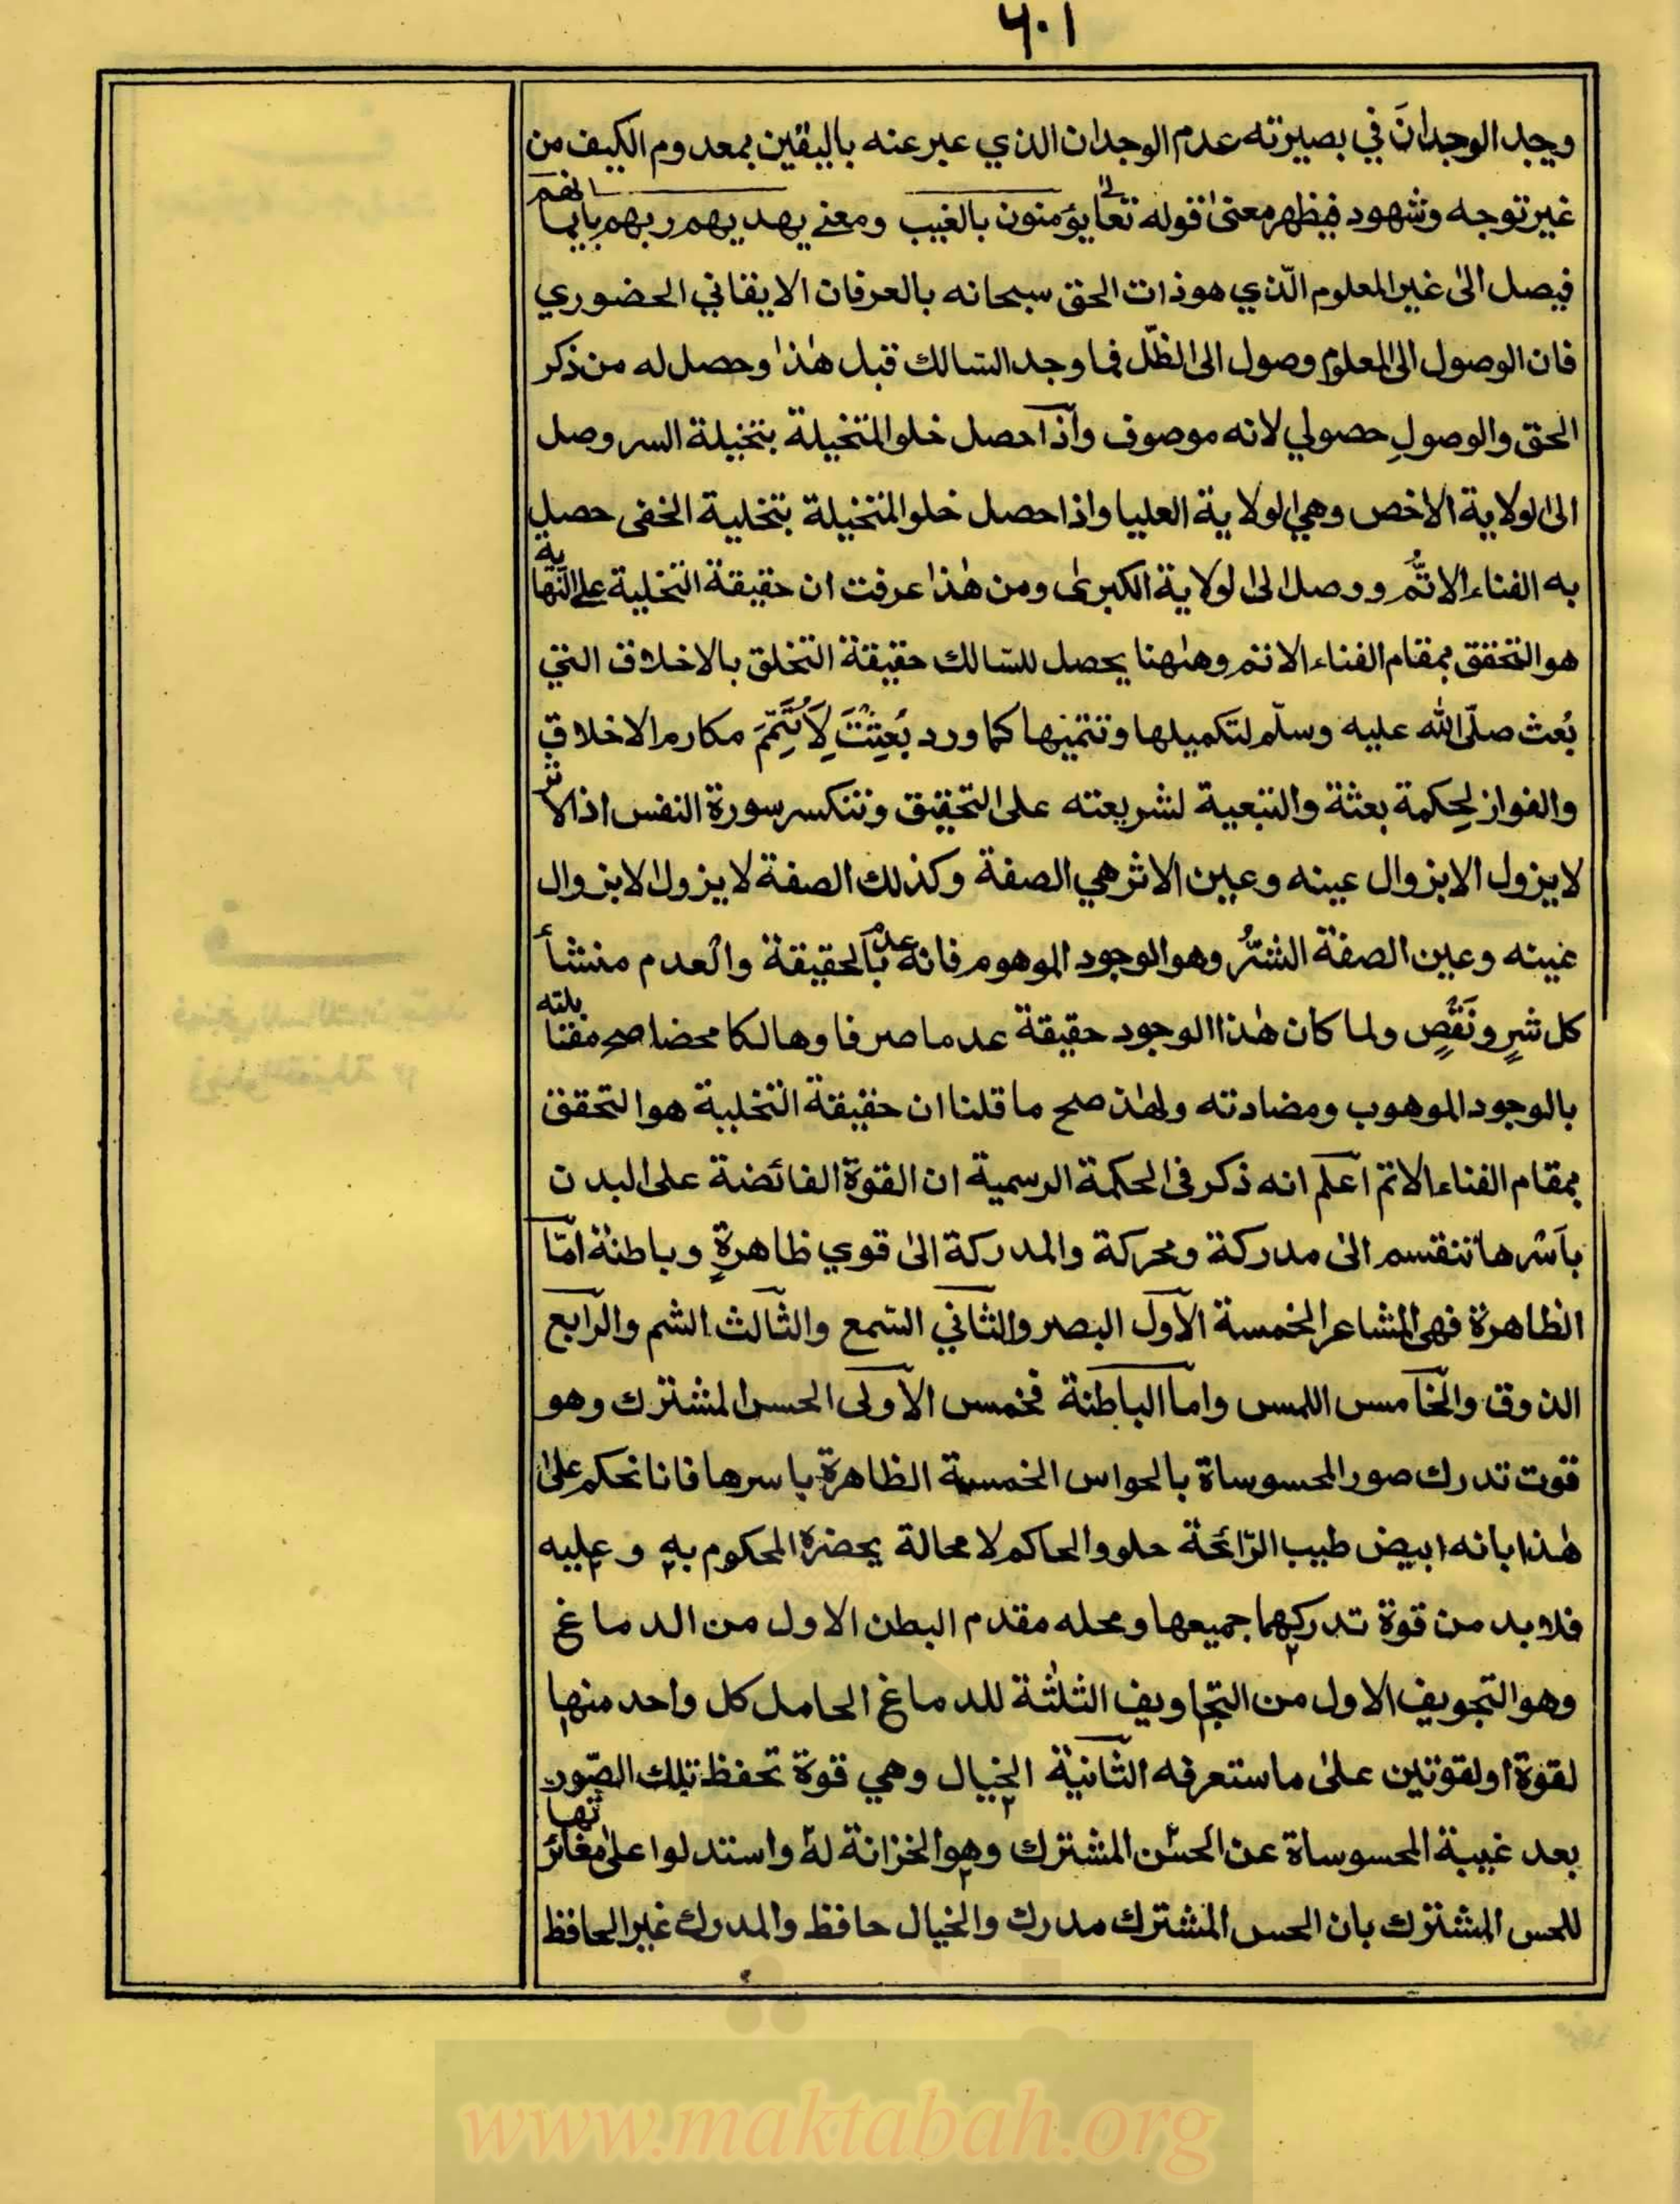 ٦٠١
ويجد الوجدانَ في بصيرته عدم الوجدان الذي عبر عنه باليقين بمعدوم الكيف من
غير توجه وشهود فيظهر معنى قوله تعالى يؤمنون بالغيب ومعنے يهديهم ربهم بايمانهم
فيصل الى غير المعلوم الّذي هو ذات الحق سبحانه بالعرفان الايقاني الحضوري
فان الوصول الى المعلوم وصول الى الظلّ فما وجد السّالك قبل هٰذا وحصل له من ذكر
الحق والوصولِ حصولي لانه موصوف واذا حصل خلو المتخيلة بتخيلة السر وصل
الى الولاية الاخص وهي الولاية العليا واذا حصل خلو المتخيلة بتخلية الخفى حصل
به الفناء الاتُّم ووصل الى الولاية الكبرى ومن هٰذا عرفت ان حقيقة التخلية على النهاية
هو التحقق بمقام الفناء الاتم وهٰهنا يحصل للسّالك حقيقة التخلق بالاخلاق التي
بُعث صلّى الله عليه وسلّم لتكميلها وتتميمها كما ورد بُعِثْتُ لِأُتَمِّمَ مكارم الاخلاقِ
والفواز لِحِكمة بعثة والتبعية لشريعته على التحقيق وتنكسر سورة النفس اذ الاثر
لا يزول الا بزوال عينه وعين الاثر هي الصفة وكذلك الصفة لا يزول الا بزوال
عينه وعين الصفة الشّرُّ وهو الوجود الموهوم فانه عدم بالحقيقة والعدم منشأ
كل شرٍ ونَقْصٍ ولما كان هٰذا الوجود حقيقة عدما صرفا وهالكا محضا صح مقابلته
بالوجود الموهوب ومضادته ولهٰذا صح ما قلنا ان حقيقة التخلية هو التحقق
بمقام الفناء الاتم اعلم انه ذكر فى الحكمة الرسمية ان القوة الفائضة على البدن
بأسرها تنقسم الى مدركة ومحركة والمدركة الى قوي ظاهرةٍ وباطنة امّا
الظاهرة فهى المشاعر الخمسة الاول البصر والثاني السّمع والثالث الشم والرابع
الذوق والخامس اللمس واما الباطنة فخمس الاولى الحس المشترك وهو
قوت تدرك صور المحسوساة بالحواس الخمسة الظاهرة باسرها فانا نحكم على
هٰذا بانه ابيض طيب الرّائحة حلو والحاكم لا محالة يحضره المحكوم به وعليه
فلا بد من قوة تدركهما جميعها ومحله مقدم البطن الاول من الدماغ
وهو التجويف الاول من التجاويف الثلٰثة للدماغ الحامل كل واحد منها
لقوة اولقوتين على ما ستعرفه الثانية الخيال وهي قوة تحفظ تلك الصّور
بعد غيبة المحسوساة عن الحسّ المشترك وهو الخزانة له واستدلوا على مغائرتها
للحس المشترك بان الحس المشترك مدرك والخيال حافظ والمدرك غير الحافظ
www.maktabah.org